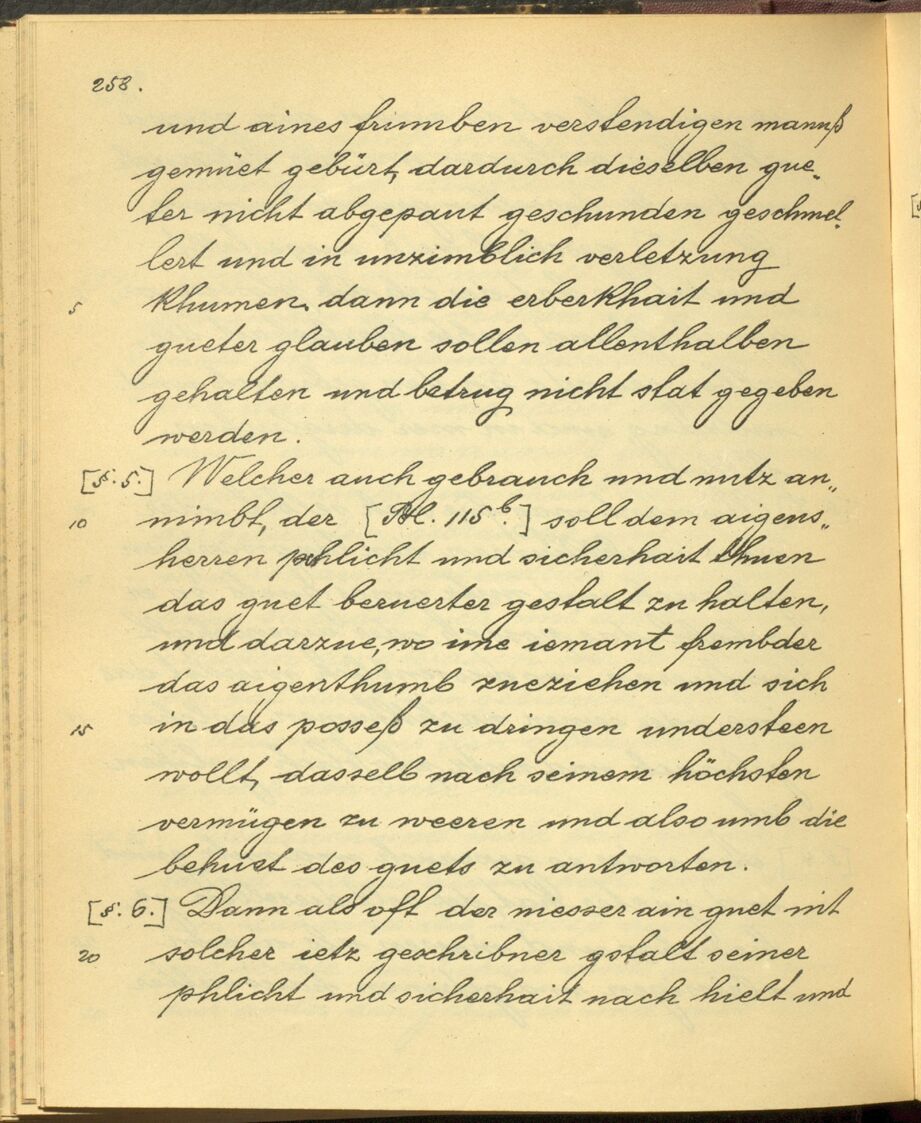 258.
und aines frumben verstendigen mannß
gemüet gebürt, dardurch dieselben gue-
ter nicht abgepaut geschunden geschmel-
lert und in unzimblich verletzung
5 khumen, dann die erberkhait und
gueter glauben sollen allenthalben
gehalten und betrug nicht stat gegeben
werden.
[§. 5.] Welcher auch gebrauch und nutz an„
10 nimbt, der [Bl. 115b.] soll dem aigens„
herren phlicht und sicherhait thuen
das guet beruerter gestalt zu halten,
und darzue, wo ime iemant frembder
das aigenthumb zueziehen und sich
15 in das posseß zu dringen understeen
wollt, dasselb nach seinem höchsten
vermügen zu weeren und also umb die
behuet des guets zu antworten.
[§. 6.] Dann als oft der niesser ain guet nit
20 solcher ietz geschribner gstalt seiner
phlicht und sicherhait nach hielt und